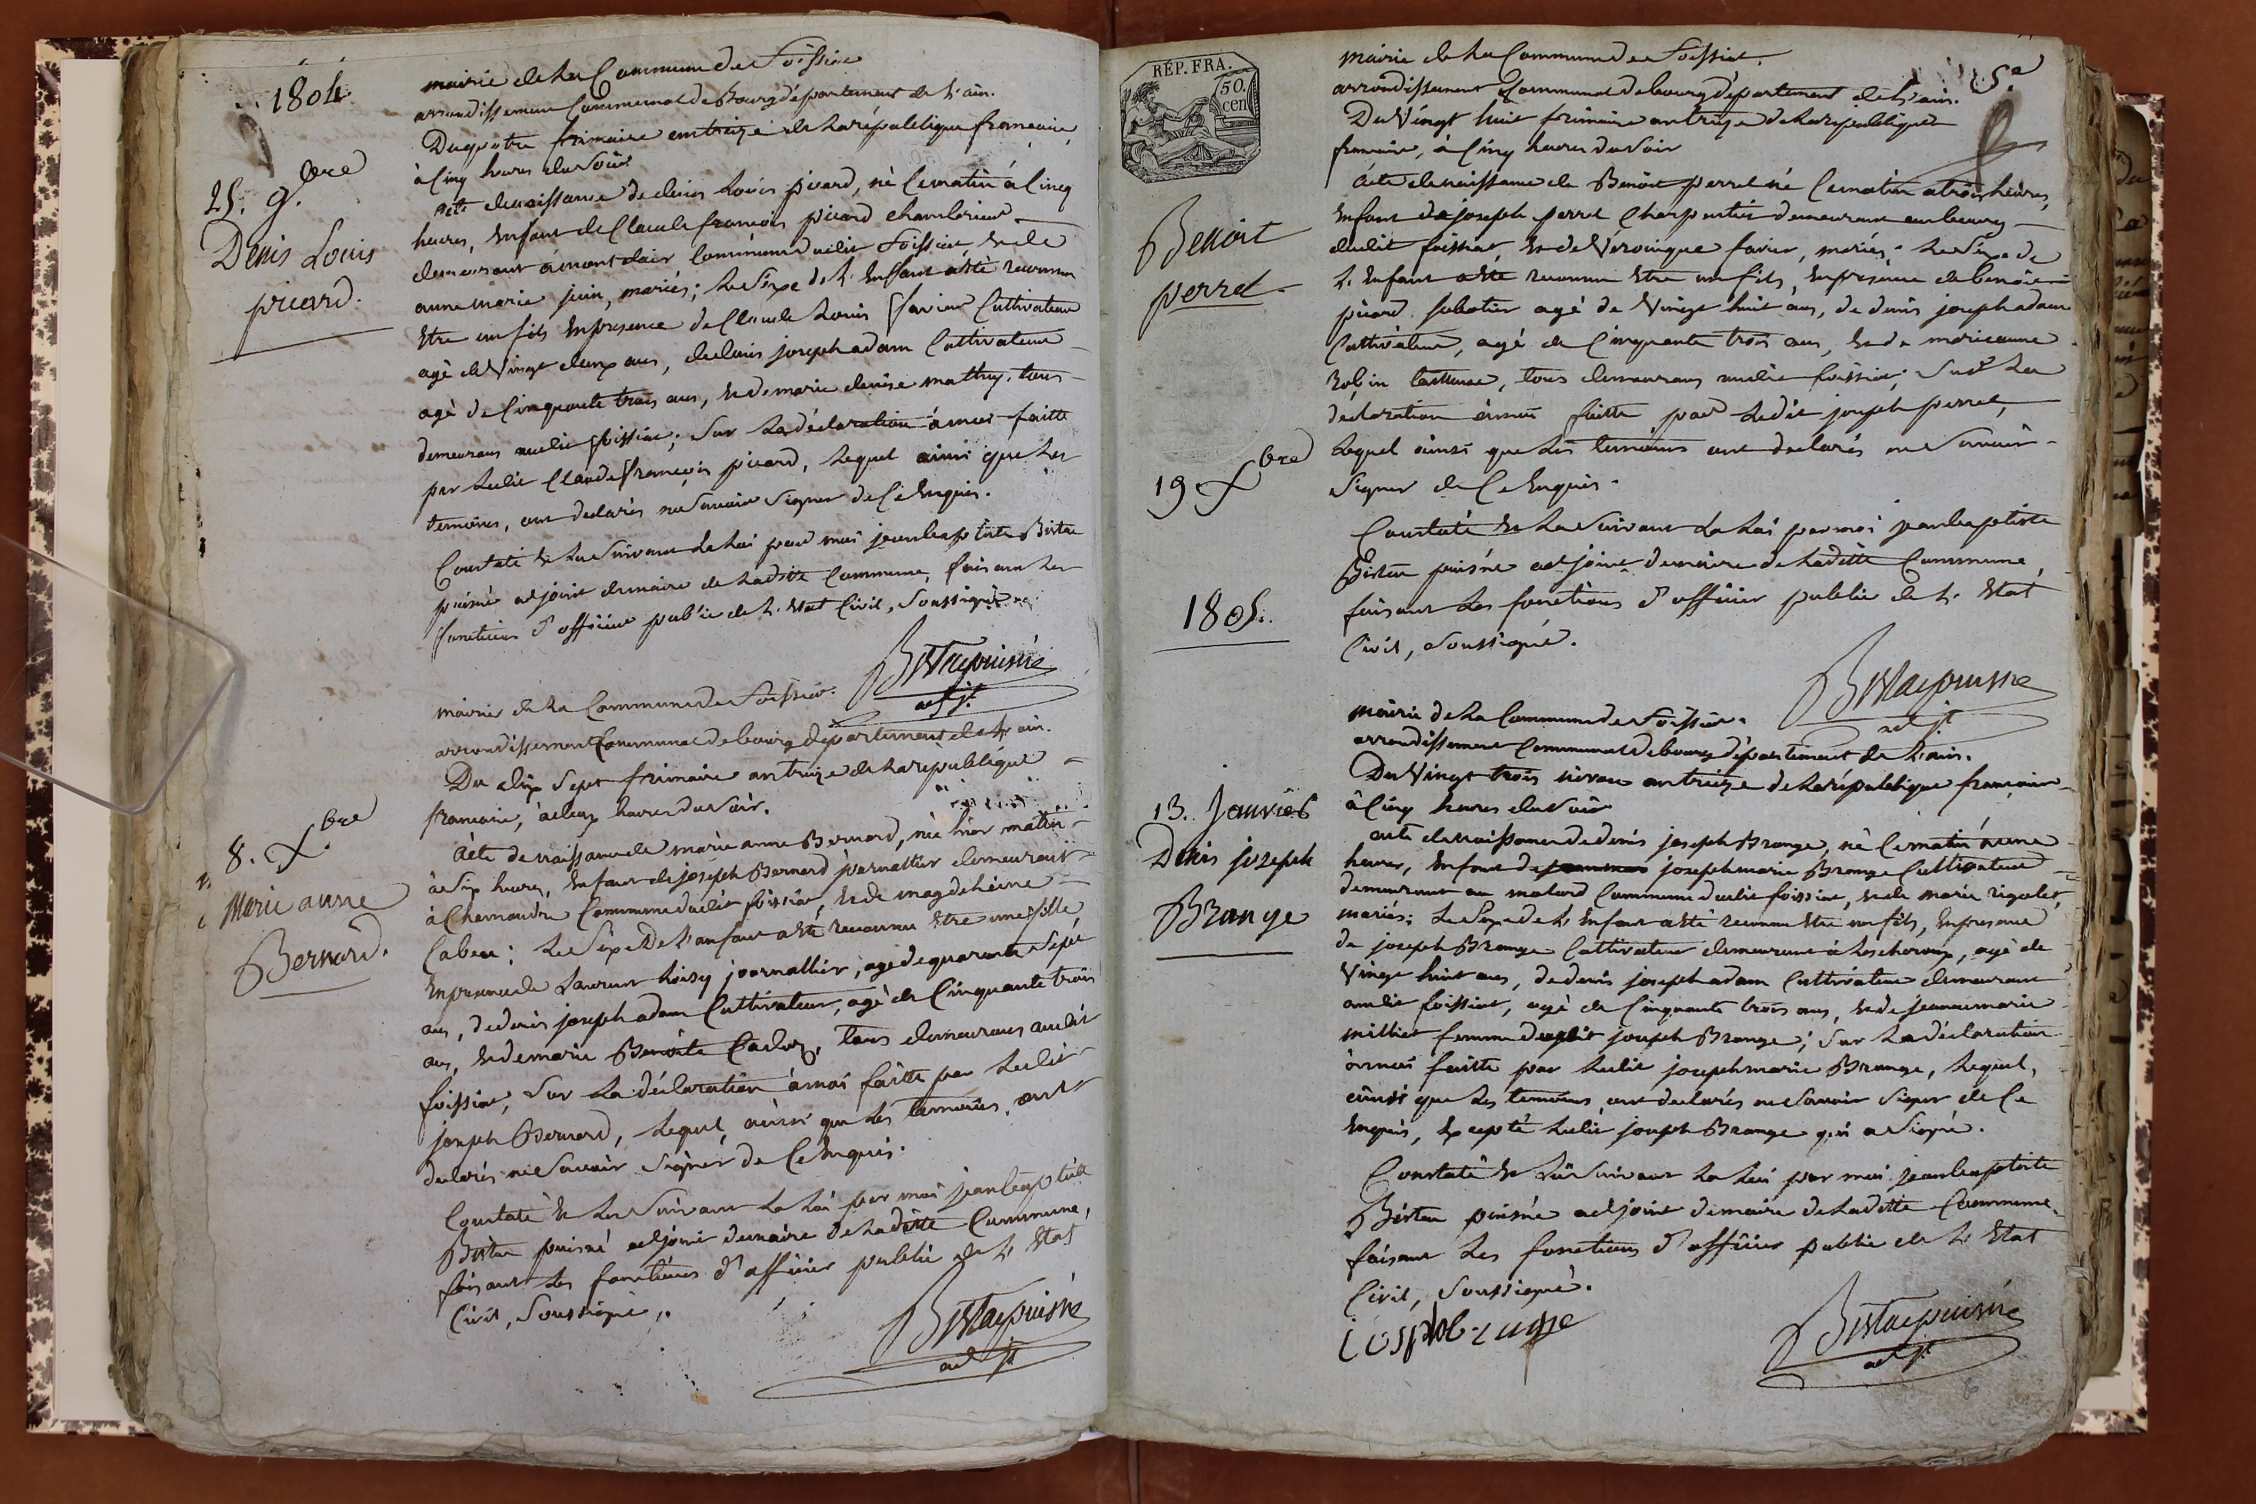 1804.
25. 9.bre
Denis Louis
picard.
mairie de la Commune de Foissiat
arrondissement Communal de Bourg département de L'ain.
Du quatre frimaire an treize de la république francaise,
à Cinq heures du Soir
Acte de naissance de denis Louis picard, né Ce matin à Cinq
heures, Enfant de Claude francois picard
demeurant à montclair Commune dudit Foissiat et de
anne marie juin, mariés; Le Sexe de L'Enfant a été reconnu
Etre un fils En presence de Claude Louis favier Cultivateur
agé de Vingt deux ans, de denis joseph adam Cultivateur
agé de Cinquante trois ans, et de marie denise mathy, tous
demeurans audit foissiat; Sur La déclaration à moi faitte
par Ledit Claude francois picard, Lequel ainsi que Les
temoins, ont declarés ne Savoir Signer de Ce Enquis.
Constaté et Lu Suivant La Loi par moi jean baptiste
puisné adjoint du maire de Ladite Commune, faisant Les
fonctions d'officier public de L'Etat Civil, Soussigné
puisné
adjt.
8. X.bre
Marie anne
Bernard.
mairie de La Commune de Foissiat.
arrondissement Communal de bourg département de L'ain.
Du dix Sept frimaire an treize de La republique
francaise, à deux heures du Soir.
Acte de naissance de marie anne Bernard, née hier matin
à Six heures, Enfant de joseph Bernard journallier demeurant
à Chemandre Commune dudit foissiat, et de magdeleine
Le Sexe de l'enfant a été reconnu être une fille,
En presence de Laurent Loisy journallier, agé de quarante Sept
ans, de denis joseph adam Cultivateur, agé de Cinquante trois
ans, et de marie Benoite tous demeurans audit
foissiat, Sur La déclaration à moi faitte par Ledit
joseph Bernard, Lequel, ainsi que Les temoins, ont
declarés ne Savoir Signer de Ce Enquis.
Constaté et Lu Suivant La Loi par moi jean baptiste
puisné adjoint du maire de Ladite Commune,
faisant Les fonctions d'officier public de L'Etat
Civil, Soussigné.
puisné
adjt
RÉP. FRA.
50.
cen
5.e
Benoit
perret
19 X.bre
mairie de La Commune de Foissiat.
arrondissement Communal de bourg département de L'ain.
Du Vingt huit frimaire an treize de La republique
francaise, à Cinq heures du Soir
Acte de naissance de Benoit perret né Ce matin à trois heures,
Enfant de joseph perret Charpentier demeurant au bourg
dudit foissiat, et de Véronique favier, mariés; Le Sexe de
L'Enfant a été reconnu Etre un fils, En presence de benoit
picard Sabotier agé de Vingt huit ans, de denis joseph adam
Cultivateur, agé de Cinquante trois ans, et de marie anne
Robin tous demeurans audit foissiat; Sur La
déclaration à moi faitte par Ledit joseph perret,
Lequel ainsi que Les temoins ont declarés ne Savoir
Signer de Ce Enquis.
Constaté et Lu Suivant La Loi par moi jean baptiste
puisné adjoint du maire de Ladite Commune,
faisant Les fonctions d'officier public de L'Etat
Civil, Soussigné.
puisné
adjt
1805.
13. Janvier
Denis joseph
Brange
mairie de La Commune de Foissiat.
arrondissement Communal de bourg département de L'ain.
Du Vingt trois nivose an treize de La république francaise
à Cinq heures du Soir
acte de naissance de denis joseph Brange, né Ce matin à une
heure, Enfant de joseph marie Brange Cultivateur
demeurant au Commune dudit foissiat, et de marie rigolet,
mariés; Le Sexe de L'Enfant a été reconnu Etre un fils, En presence
de joseph Brange Cultivateur demeurant à Lescheroux, agé de
Vingt huit ans, de denis joseph adam Cultivateur demeurant
audit foissiat, agé de Cinquante trois ans, et de jeanne marie
millet femme dudit joseph Brange; Sur La déclaration
à moi faitte par Ledit joseph marie Brange, Lequel,
ainsi que Les temoins ont declarés ne Savoir Signer de Ce
Enquis, Excepté Ledit joseph Brange qui a Signé.
Constaté et Lu Suivant La Loi par moi jean baptiste
puisné adjoint du maire de Ladite Commune,
faisant Les fonctions d'officier public de L'Etat
Civil, Soussigné.
puisné
adjt